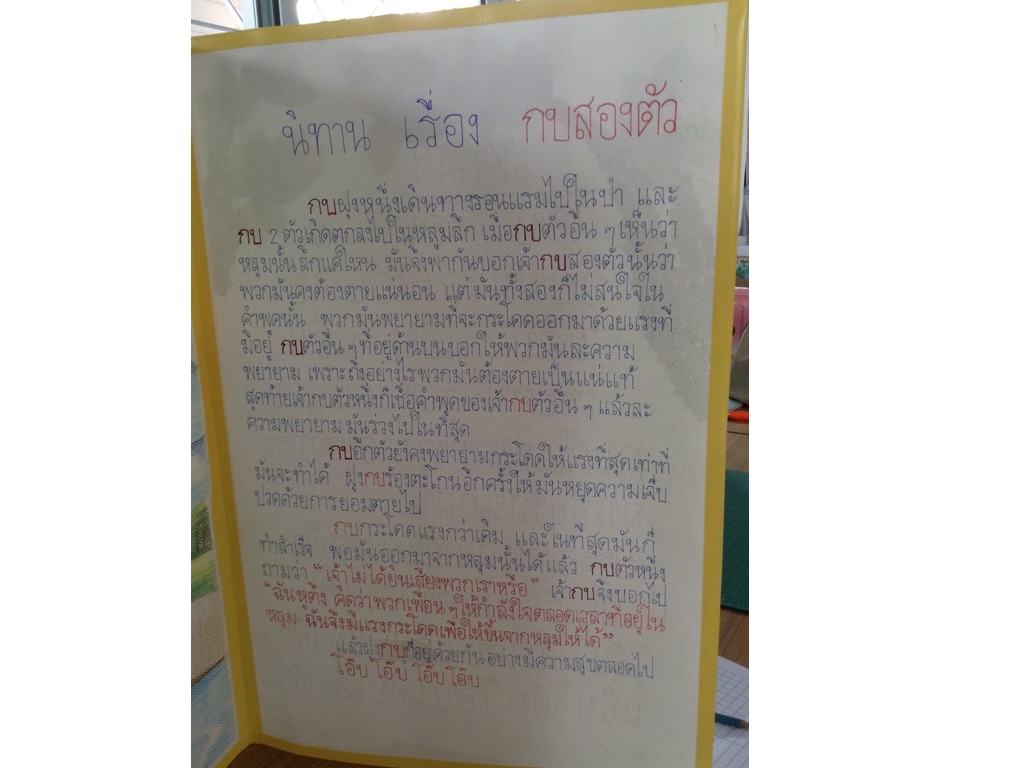 นิทาน เรื่อง กบสองตัว
กบฝูงหนึ่งเดินทางรอนแรมไปในป่า และ
กบ 2 ตัวเกิดตกลงไปในหลุมลึก เมื่อกบตัวอื่น ๆ เห็นว่า
หลุมนั้นลึกแค่ไหน มันจึงพากันบอกเจ้ากบสองตัวนั้นว่า
พวกมันคงต้องตายแน่นอน แต่มันทั้งสองก็ไม่สนใจใน
คำพูดนั้น พวกมันพยายามที่จะกระโดดออกมาด้วยแรงที่
มีอยู่ กบตัวอื่น ๆ ที่อยู่ด้านบนบอกให้พวกมันละความ
พยายาม เพราะถึงอย่างไรพวกมันต้องตายเป็นแน่แท้
สุดท้ายเจ้ากบตัวหนึ่งก็เชื่อคำพูดของเจ้ากบตัวอื่น ๆ แล้วละ
ความพยายาม มันร่วงไปในที่สุด
กบอีกตัวยังคงพยายามกระโดดให้แรงที่สุดเท่าที่
มันจะทำได้ ฝูงกบร้องตะโกนอีกครั้งให้มันหยุดความเจ็บ
ปวดด้วยการยอมตายไป
กบกระโดดแรงกว่าเดิม และในที่สุดมันก็
ทำสำเร็จ พอมันออกมาจากหลุมนั้นได้แล้ว กบตัวหนึ่ง
ถามว่า "เจ้าไม่ได้ยินเสียงพวกเราหรือ" เจ้ากบจึงบอกไป
"ฉันหูตึง คิดว่าพวกเพื่อน ๆ ให้กำลังใจตลอดเวลาที่อยู่ใน
หลุม ฉันจึงมีแรงกระโดดเพื่อให้ขึ้นจากหลุมให้ได้"
แล้วฝูงกบก็อยู่ด้วยกันอย่างมีความสุขตลอดไป
โอ๊บ โอ๊บ โอ๊บ โอ๊บ